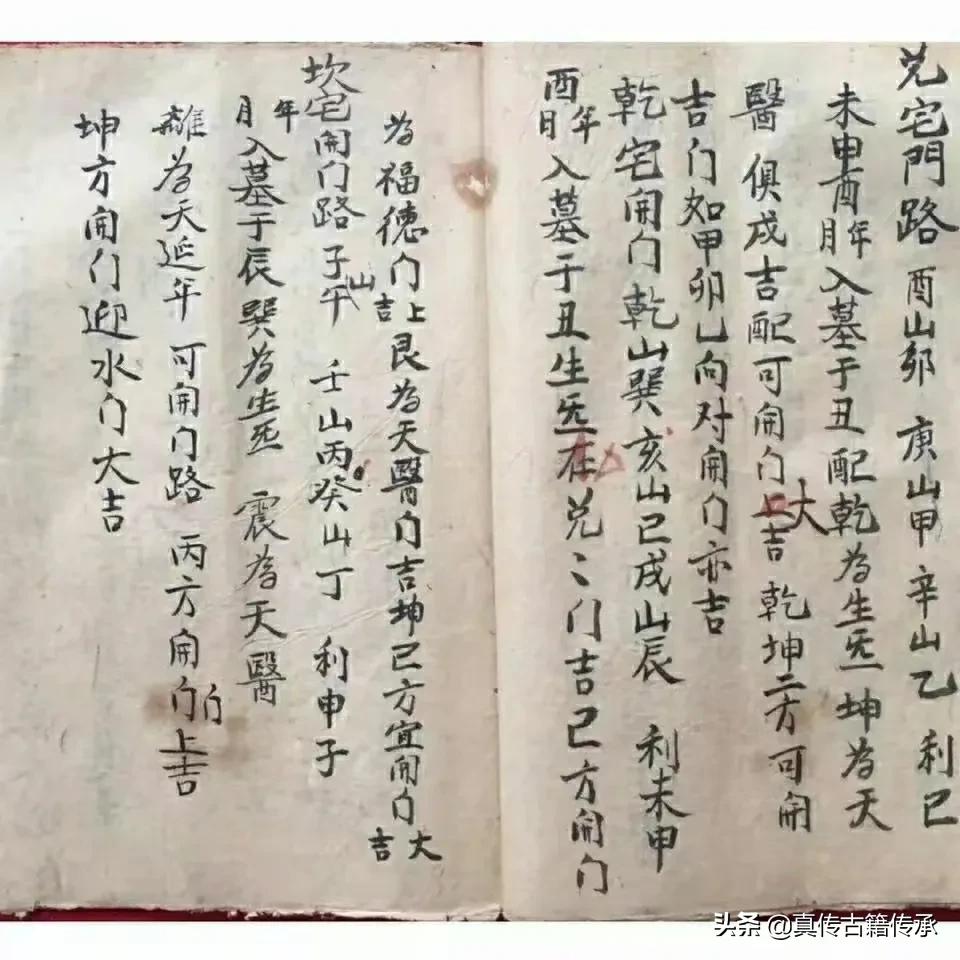 兑宅門路 酉山卯 庚山甲 辛山乙 利巳
未申酉年月入墓于丑配乾為生炁 坤為天
醫 俱戌吉配可開门上大吉 乾坤二方可開
吉门如甲卯乙向对開门亦吉
乾宅開门乾山巽亥山巳戌山辰 利未申
酉年月入墓于丑生炁在兑〻门吉巳方開门
為福德门上吉艮為天醫门吉坤巳方宜開门大吉
坎宅開门路子山午 壬山丙癸山丁 利申子
年月入墓于辰巽為生炁 震為天醫
離為天延年 可開门路 丙方開门上吉
坤方開门迎水门大吉
头条 @真传古籍传承